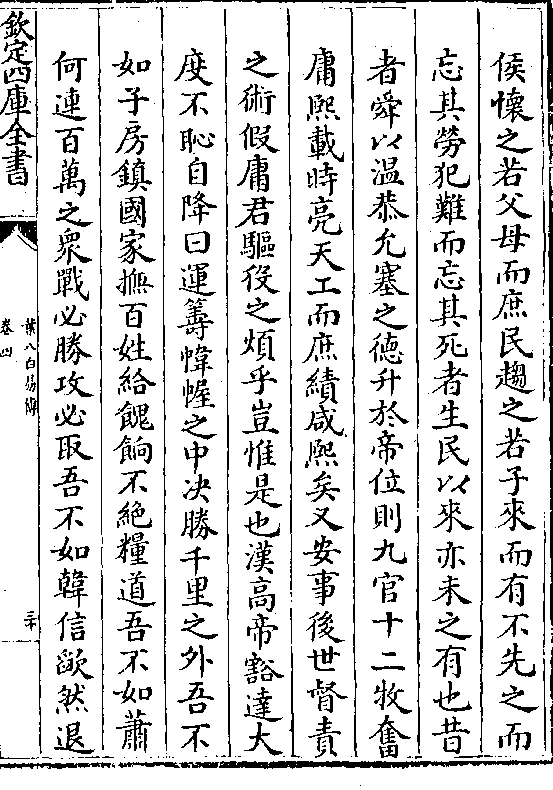 侯懷之若父母而庶民趨之若子來而有不先之而
忘其勞犯難而忘其死者生民以來亦未之有也昔
者舜以温恭允塞之德升於帝位則九官十二牧奮
庸熙載時亮天工而庶績咸熙矣又安事後世督責
之術假庸君驅役之煩乎豈惟是也漢高帝豁達大
度不恥自降曰運籌幃幄之中决勝千里之外吾不
如子房鎮國家撫百姓給餽餉不絶糧道吾不如蕭
何連百萬之衆戰必勝攻必取吾不如韓信歛然退
欽定四庫全書
葉八白易傳
卷四
三十